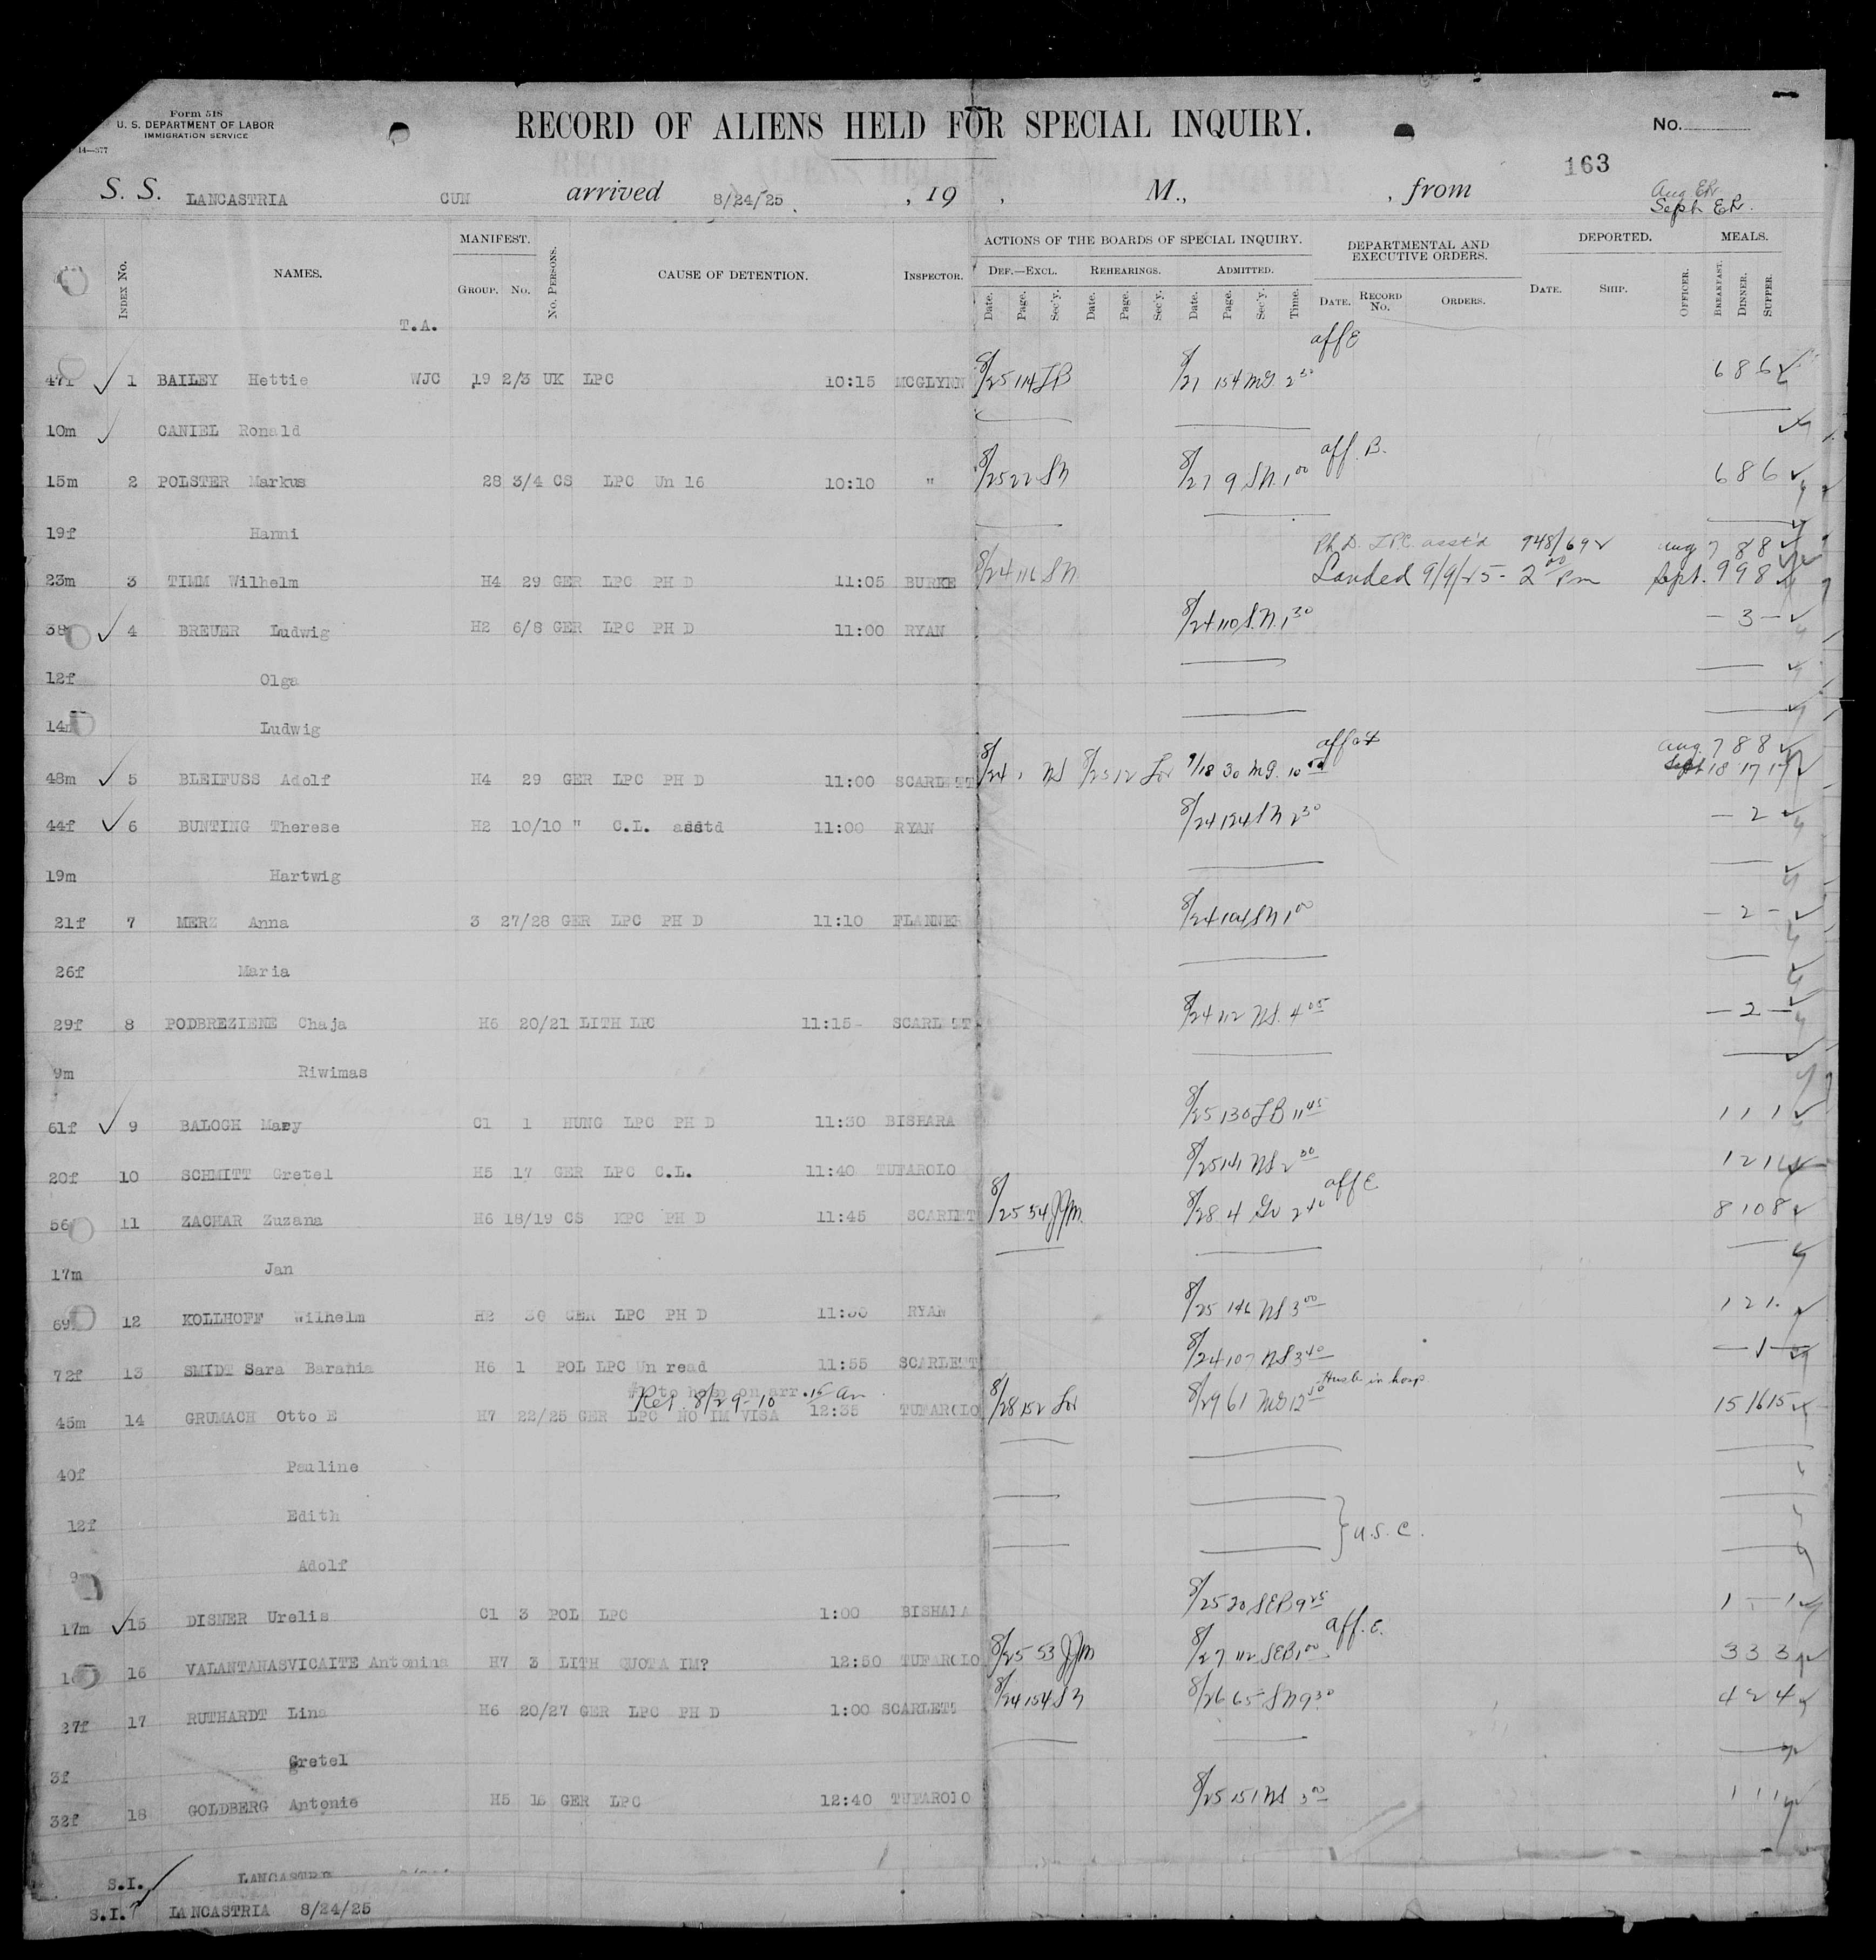 Form 518
U. S. DEPARTMENT OF LABOR
IMMIGRATION SERVICE
14—377
RECORD OF ALIENS HELD FOR SPECIAL INQUIRY.
No.
163
S. S. LANCASTRIA CUN arrived 8/24/25 , 19 , M., , from
Aug ER.
Sept. ER.
INDEX No. NAMES. MANIFEST. GROUP. No. No. PERSONS. CAUSE OF DETENTION. INSPECTOR. ACTIONS OF THE BOARDS OF SPECIAL INQUIRY. DEF.—EXCL. Date. Page. Sec'y. REHEARINGS. Date. Page. Sec'y. ADMITTED. Date. Page. Sec'y. Time. DEPARTMENTAL AND EXECUTIVE ORDERS. DATE. RECORD No. ORDERS. DEPORTED. DATE. SHIP. OFFICER. MEALS. BREAKFAST. DINNER. SUPPER.
T.A.
aff E
47f 1 BAILEY Hettie WJC 19 2/3 UK LPC 10:15 MCGLYNN 8/25 114 JB 8/27 154 MG. 2 30 6 8 6
10m CANIEL Ronald
aff. B.
15m 2 POLSTER Markus 28 3/4 CS LPC Un 16 10:10 " 8/25 22 SN 8/27 9 SN. 1 00 6 8 6
19f Hanni
Ph.D. LPC asst'd 948/69 Aug 7 8 8
23m 3 TIMM Wilhelm H4 29 GER LPC PH D 11:05 BURKE 8/24 116 SN Landed 9/9/25 - 2 00 Pm Sept. 9 9 8
38 4 BREUER Ludwig H2 6/8 GER LPC PH D 11:00 RYAN 8/24 110 S.N. 1 30 - 3 -
12f Olga
14m Ludwig
Aug. 7 8 8
48m 5 BLEIFUSS Adolf H4 29 GER LPC PH D 11:00 SCARLETT 8/24 NS 8/25 12 9/18 30 MG. 10 Sept 18 17 17
44f 6 BUNTING Therese H2 10/10 " C.L. asstd 11:00 RYAN 8/24 124 SN 2 30 - 2
19m Hartwig
21f 7 MERZ Anna 3 27/28 GER LPC PH D 11:10 FLANNER 8/24 104 SN 1 00 - 2 -
26f Maria
29f 8 PODBREZIENE Chaja H6 20/21 LITH LPC 11:15- SCARLETT 8/24 112 NS. 4 05 - 2 -
9m Riwimas
61f 9 BALOGH Mary C1 1 HUNG LPC PH D 11:30 BISHARA 8/25 130 JB 11 45 1 1 1
20f 10 SCHMITT Gretel H5 17 GER LPC C.L. 11:40 TUFAROLO 8/25 141 NS 2 00 1 2 1
aff E
56 11 ZACHAR Zuzana H6 18/19 CS LPC PH D 11:45 SCARLETT 8/25 54 JJM. 8/28 4 2 40 8 10 8
17m Jan
69 12 KOLLHOFF Wilhelm H2 30 GER LPC PH D RYAN 8/25 146 NS 3 00 1 2 1
72f 13 SMIDT Sara Barahia H6 1 POL LPC Un read 11:55 SCARLETT 8/24 107 NS 3 40 - 1 -
to hosp on arr. Rel. 8/29-10 15 am Husb in hosp
45m 14 GRUMACH Otto E H7 22/25 GER LPC NO IM VISA 12:35 TUFAROLO 8/28 152 8/29 61 MG 12 50 15 16 15
40f Pauline
12f Edith
} U.S.C.
9 Adolf
17m 15 DISNER Urelis C1 3 POL LPC 1:00 BISHARA 8/25 20 SEB 9 25 1 - 1
aff. E.
16 VALANTANASVICAITE Antonina H7 3 LITH QUOTA IM? 12:50 TUFAROLO 8/25 53 JJM 8/27 112 SEB 1 00 3 3 3
27f 17 RUTHARDT Lina H6 20/27 GER LPC PH D 1:00 SCARLETT 8/24 154 SN 8/26 65 SN 9 30 4 2 4
3f Gretel
32f 18 GOLDBERG Antonie H5 15 GER LPC 12:40 TUFAROLO 8/25 151 NS 3 00 1 1 1
S.I. LANCASTRIA
S.I. LANCASTRIA 8/24/25